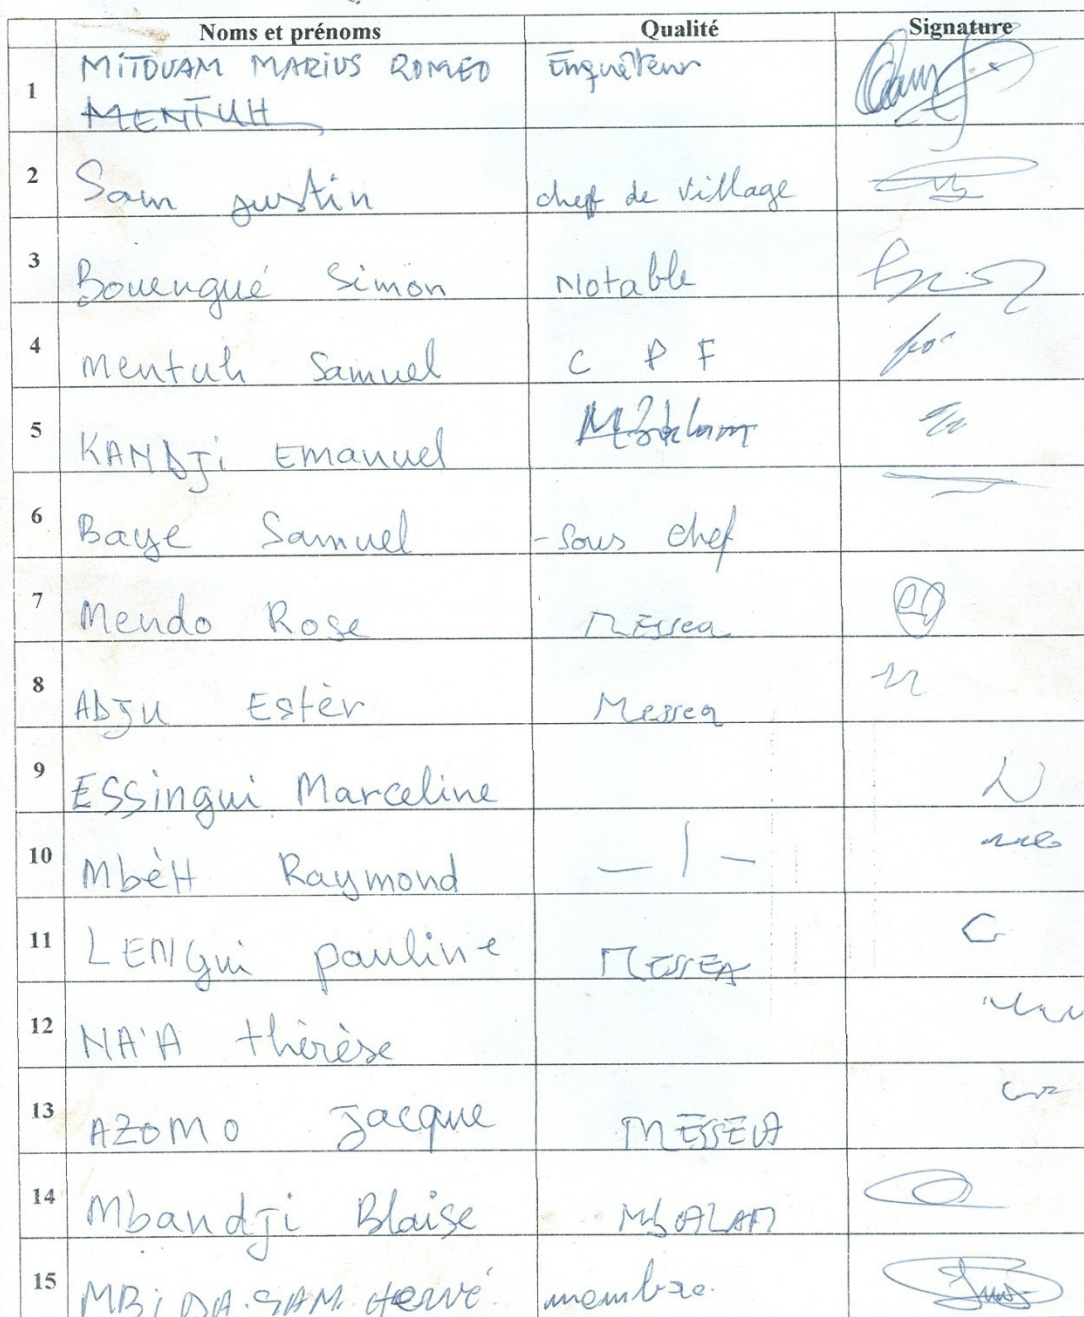 Noms et prénoms Qualité Signature
1 MiTOUAM MARIUS ROMEO Enquêteur
MENTUH
2 Sam justin chef de village
3 Bouengué Simon Notable
4 Mentuh Samuel C P F
5 KANDJi Emanuel
6 Baye Samuel - Sous chef
7 Mendo Rose Messea
8 ADJU Estèr Messea
9 ESSingui Marceline
10 MbèH Raymond — | —
11 LENGui pauline MESSEA
12 NA'A thérèse
13 AZOMO Jacque MESSEA
14 MbandJi Blaise MbALAM
15 MBiDA.SAM. Hervé membre.